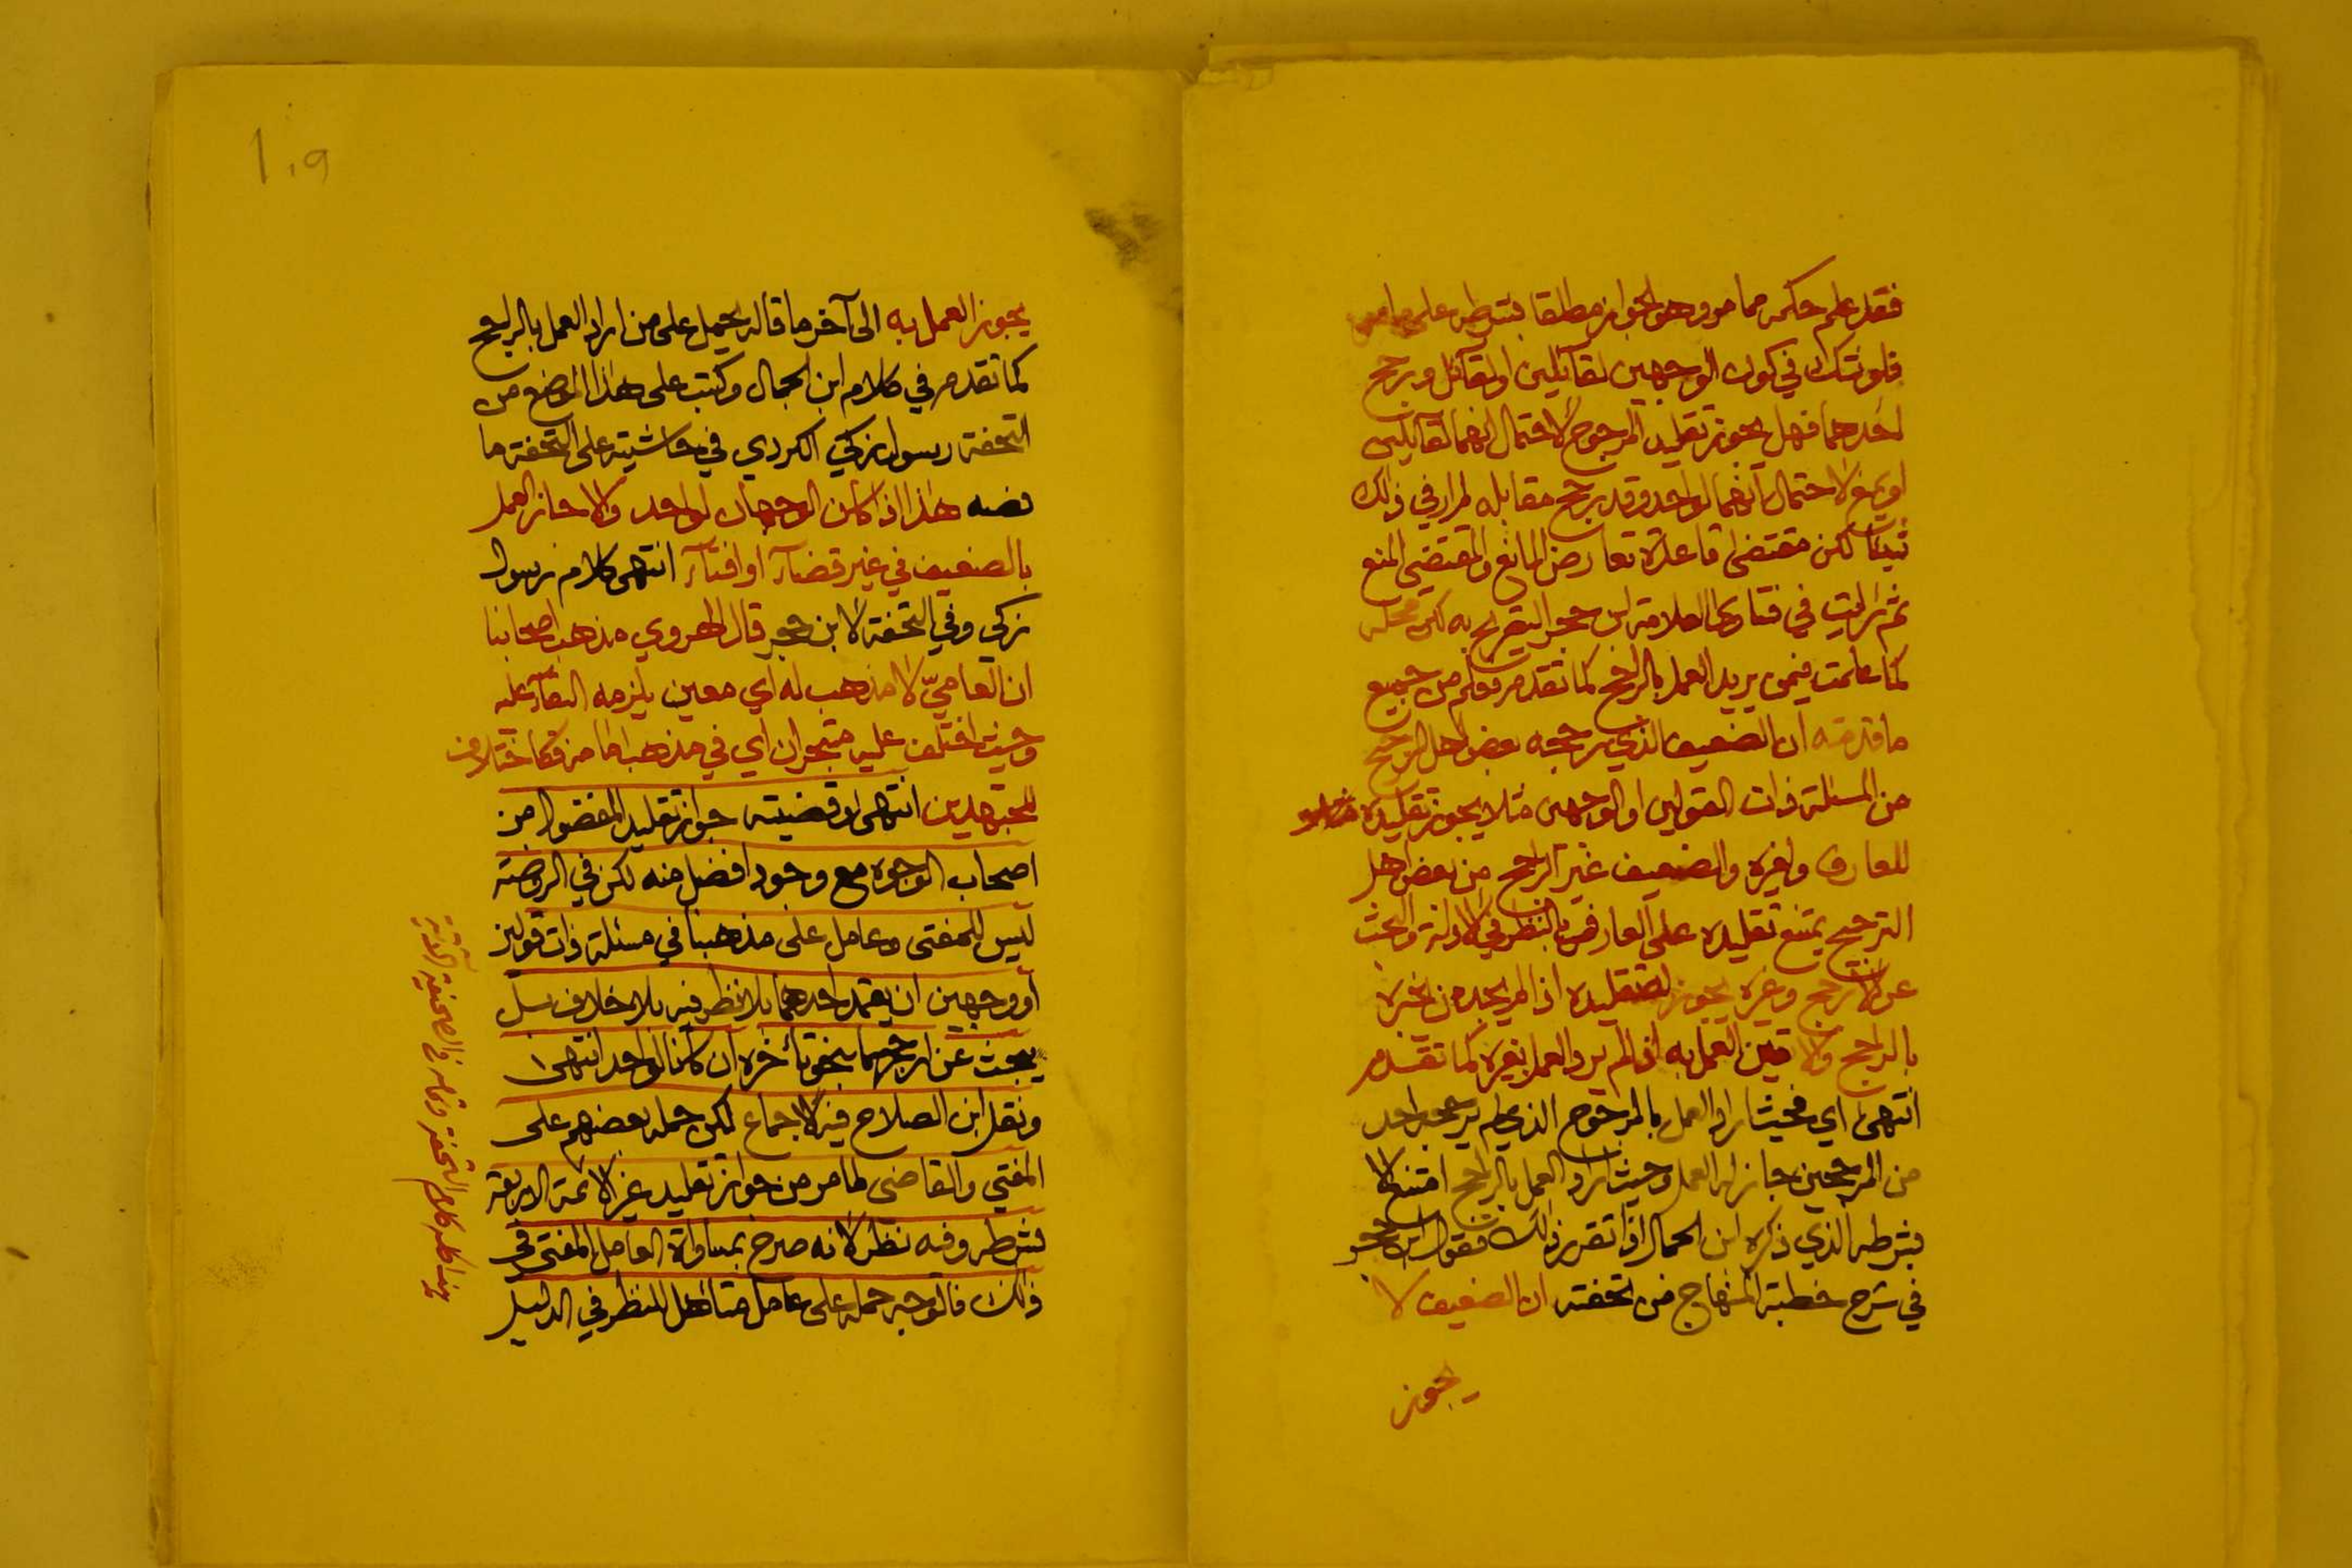 فقد علم حكمه مما مر وهو الجواز مطلقا بشرطه على ما مر
فلو شك في كون الوجهين لقائلين او لقائل ورجح
احدهما فهل يجوز تقليد المرجوح لاحتمال انهما لقائلين
او يمنع لاحتمال انهما لواحد وقد رجح مقابله لم ار في ذلك
شيئا لكن مقتضى قاعدة تعارض المانع والمقتضى المنع
ثم رايت في فتاوى العلامة ابن حجر التصريح به لكن محله
كما علمت فيمن يريد العمل بالراجح كما تقدم وعلم من جميع
ما قدمته ان الضعيف الذي رجحه بعض اهل الترجيح
من المسئلة ذات القولين او الوجهين مثلا يجوز تقليده
للعارف ولغيره والضعيف غير الراجح من بعض اهل
الترجيح يمتنع تقليده على العارف بالنظر في الادلة والبحث
عن الارجح وغيره يجوز له تقليده اذا لم يجد من يخبره
بالراجح والا تعين العمل به ان لم يرد العمل بغيره كما تقدم
انتهى اي فحيث اراد العمل بالمرجوح الذي لم يرجحه احد
من المرجحين جاز له العمل وحيث اراد العمل بالراجح امتنع الا
بشرطه الذي ذكره ابن الجمال اذا تقرر ذلك فقول ابن حجر
في شرح خطبة المنهاج من تحفته ان الضعيف لا
يجوز
١٠٩
يجوز العمل به الى آخر ما قاله يحمل على من اراد العمل بالراجح
كما تقدم في كلام ابن الجمال وكتب على هذا الموضع من
التحفة رسول زكي الكردي في حاشيته على التحفة ما
نصه هذا اذا كان الوجهان لواحد والا جاز العمل
بالضعيف في غير قضاء او افتاء انتهى كلام رسول
زكي وفي التحفة لابن حجر قال الهروي مذهب اصحابنا
ان العامي لا مذهب له اي معين يلزمه البقاء عليه
وحيث اختلف عليه متبحران اي في مذهب امامه فكاختلاف
المجتهدين انتهى وقضيته جواز تقليد المفضول من
اصحاب الوجوه مع وجود افضل منه لكن في الروضة
ليس للمفتى وعامل على مذهبنا في مسئلة ذات قولين
او وجهين ان يعتمد احدهما بلا نظر فيه بلا خلاف بل
يبحث عن ارجحهما بنحو تأخره ان كانا لواحد انتهى
ونقل ابن الصلاح فيه الاجماع لكن حمله بعضهم على
المفتي والقاضي لما مر من جواز تقليد غير الائمة الاربعة
بشرطه وفيه نظر لانه صرح بمساواة العامل للمفتى في
ذلك فالوجه حمله على عامل متأهل للنظر في الدليل